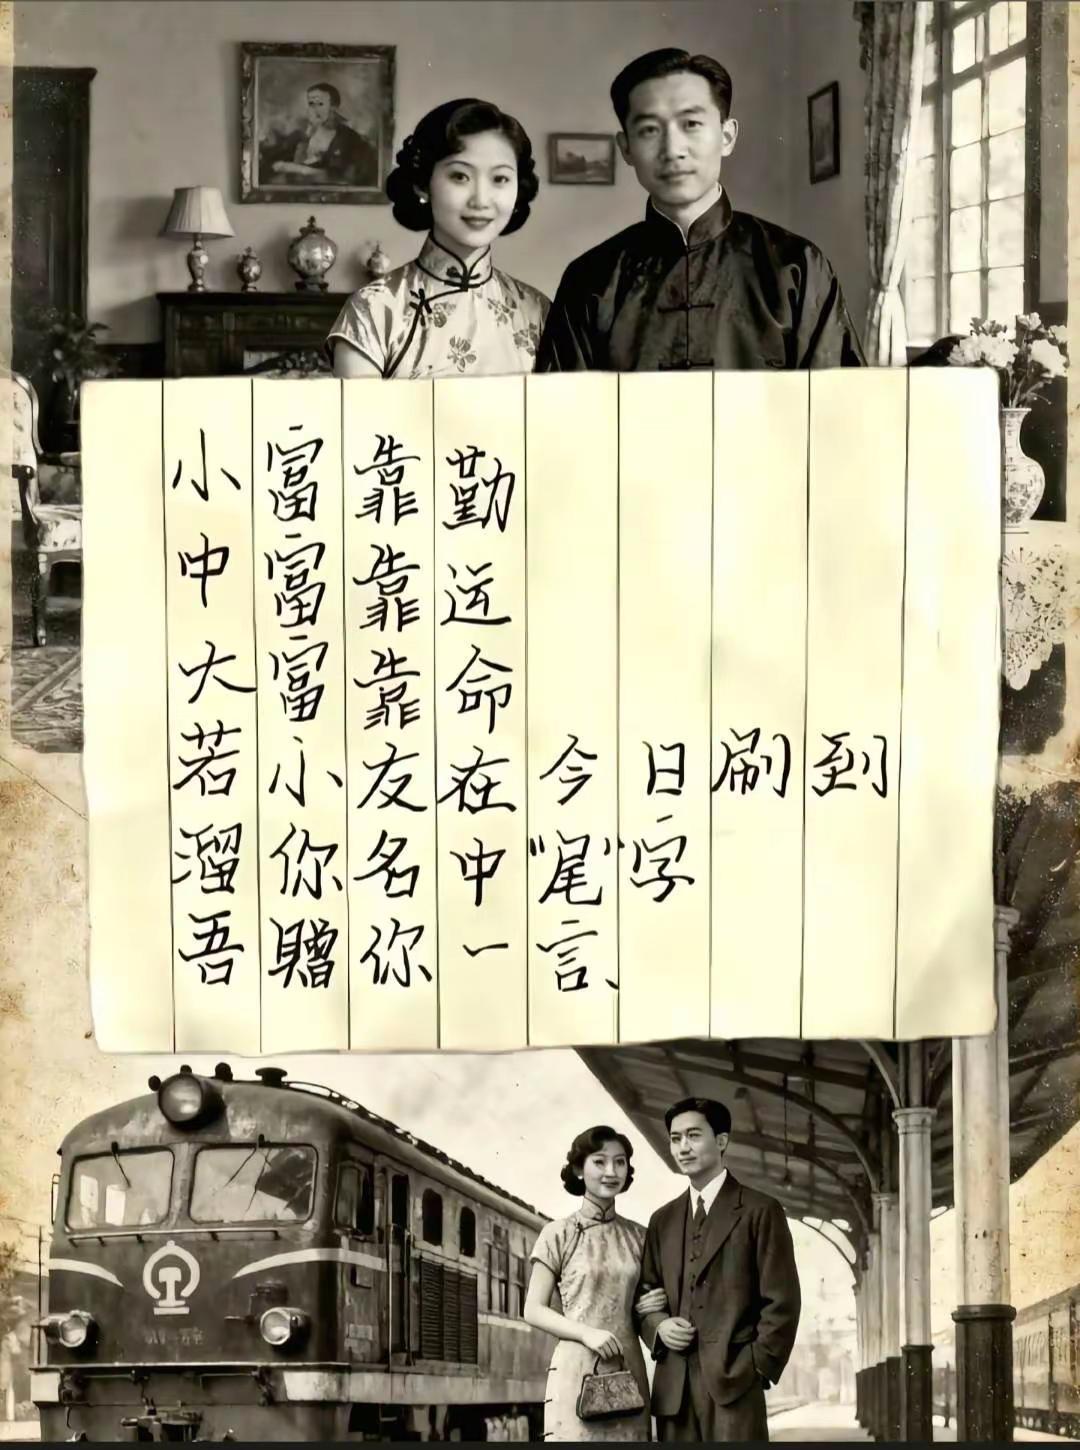 小富靠勤
中富靠运
大富靠命
若小友在今日刷到
溜你名中“尾”字
吾赠你一言、